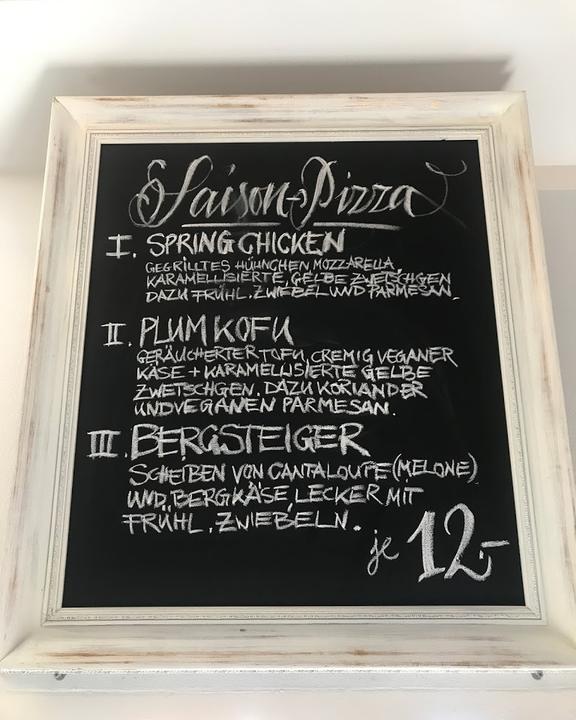 Saison-Pizza
I. SPRING CHICKEN
GEGRILLTES HÜHNCHEN MOZZARELLA
KARAMELLISIERTE, GELBE ZWETSCHGEN
DAZU FRÜHL. ZWIEBEL UND PARMESAN.
II. PLUM KOFU
GERÄUCHERTER TOFU, CREMIG VEGANER
KÄSE + KARAMELLISIERTE GELBE
ZWETSCHGEN. DAZU KORIANDER
UND VEGANEN PARMESAN.
III. BERGSTEIGER
SCHEIBEN VON CANTALOUPE (MELONE)
UND BERGKÄSE LECKER MIT
FRÜHL. ZWIEBELN.
je 12,-